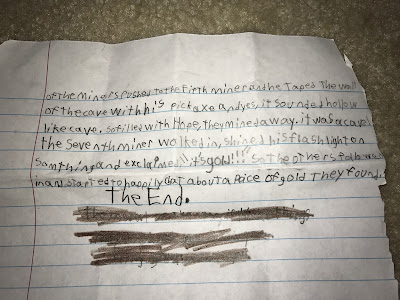 of the miners pushed to the fifth miner and he Taped The wall
of the cave with his pickaxe and yes, it sounded hollow
like cave, so filled with Hope, they mined away. it was a cave!
the seventh miner walked in, shined his flashlight on
somthing and exclaimed "it's gold!!!" So the others followed
in and started to happily chat about a Peice of gold They found.
The End.